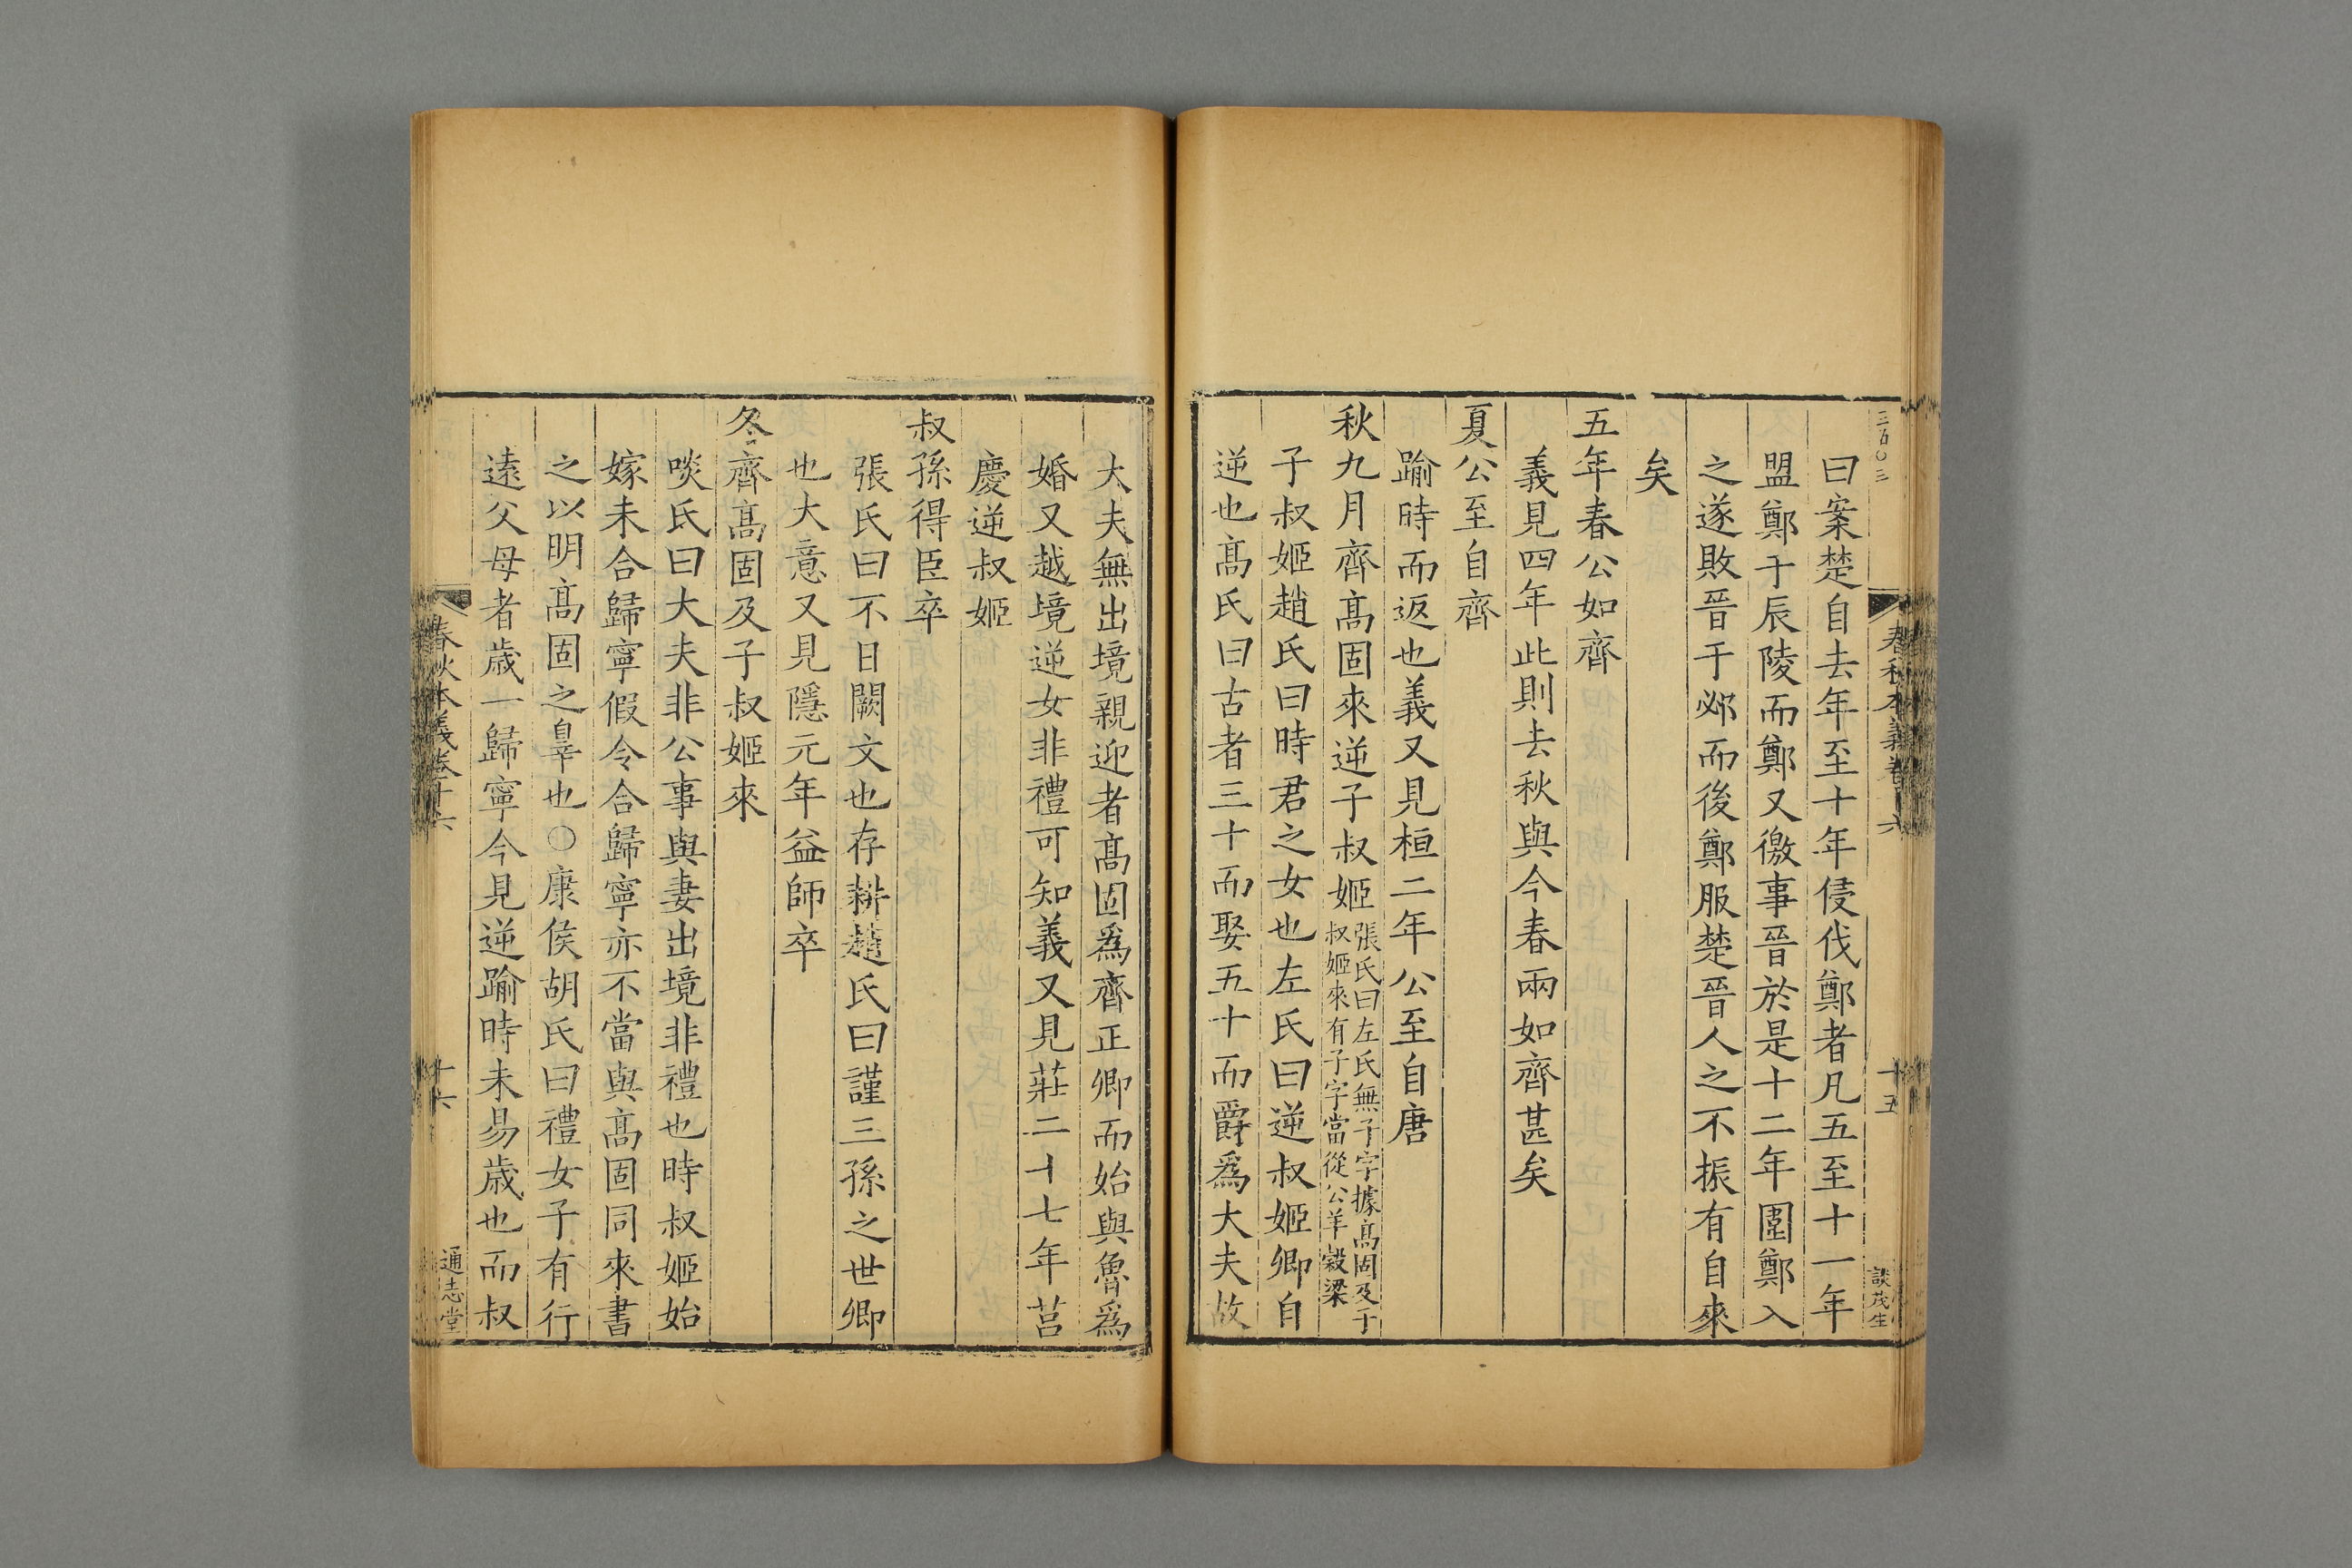 三百〇三
春秋本義卷十六
十五
談茂生
曰案楚自去年至十年侵伐鄭者凡五至十一年
盟鄭于辰陵而鄭又徼事晉於是十二年圍鄭入
之遂敗晉于邲而後鄭服楚晉人之不振有自來
矣
五年春公如齊
義見四年此則去秋與今春兩如齊甚矣
夏公至自齊
踰時而返也義又見桓二年公至自唐
秋九月齊髙固來逆子叔姬張氏曰左氏無子字據髙固及子
叔姬來有子字當從公羊穀梁
子叔姬趙氏曰時君之女也左氏曰逆叔姬卿自
逆也髙氏曰古者三十而娶五十而爵為大夫故
大夫無出境親迎者髙固為齊正卿而始與魯為
婚又越境逆女非禮可知義又見莊二十七年莒
慶逆叔姬
叔孫得臣卒
張氏曰不日闕文也存耕趙氏曰謹三孫之世卿
也大意又見隱元年益師卒
冬齊髙固及子叔姬來
啖氏曰大夫非公事與妻出境非禮也時叔姬始
嫁未合歸寧假令合歸寧亦不當與髙固同來書
之以明髙固之辠也〇康侯胡氏曰禮女子有行
遠父母者歲一歸寧今見逆踰時未易歲也而叔
春秋本義卷十六
十六
通志堂